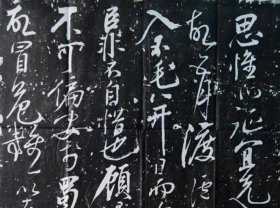 思惟北征宜先
故五月渡瀘
入不毛并日而
臣非不自惜也顧
不可偏安於蜀
故冒危難以